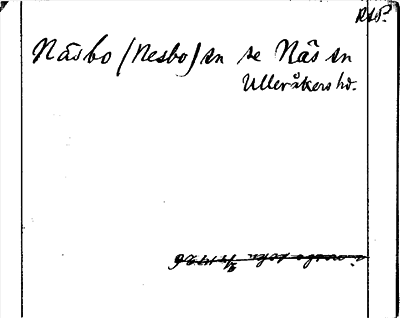 Näsbo (Nesbo) sn se Näs sn
Ulleråkers hd.